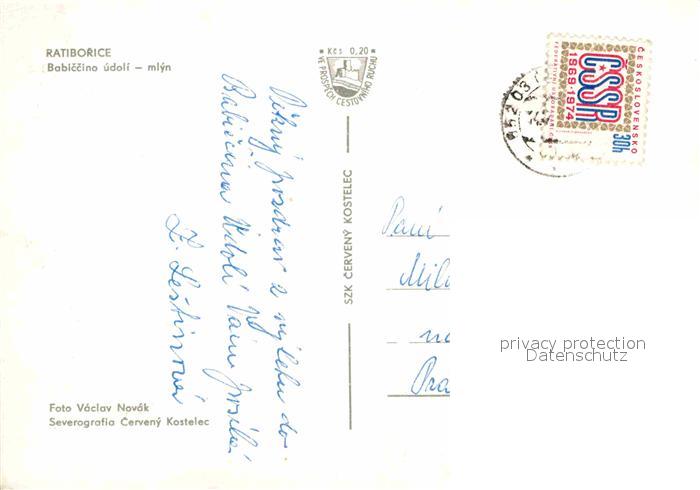 RATIBOŘICE
Babiččino údolí – mlýn
Kčs 0,20
VE PROSPĚCH CESTOVNÍHO RUCHU
ČESKOSLOVENSKO
ČSSR
1969·1974
30h
Pěkný pozdrav z výletu do
Babiččina Údolí Vám posílá
Z. Leštinová
SZK ČERVENÝ KOSTELEC
Paní
Mil
na
Pra
privacy protection
Datenschutz
Foto Václav Novák
Severografia Červený Kostelec